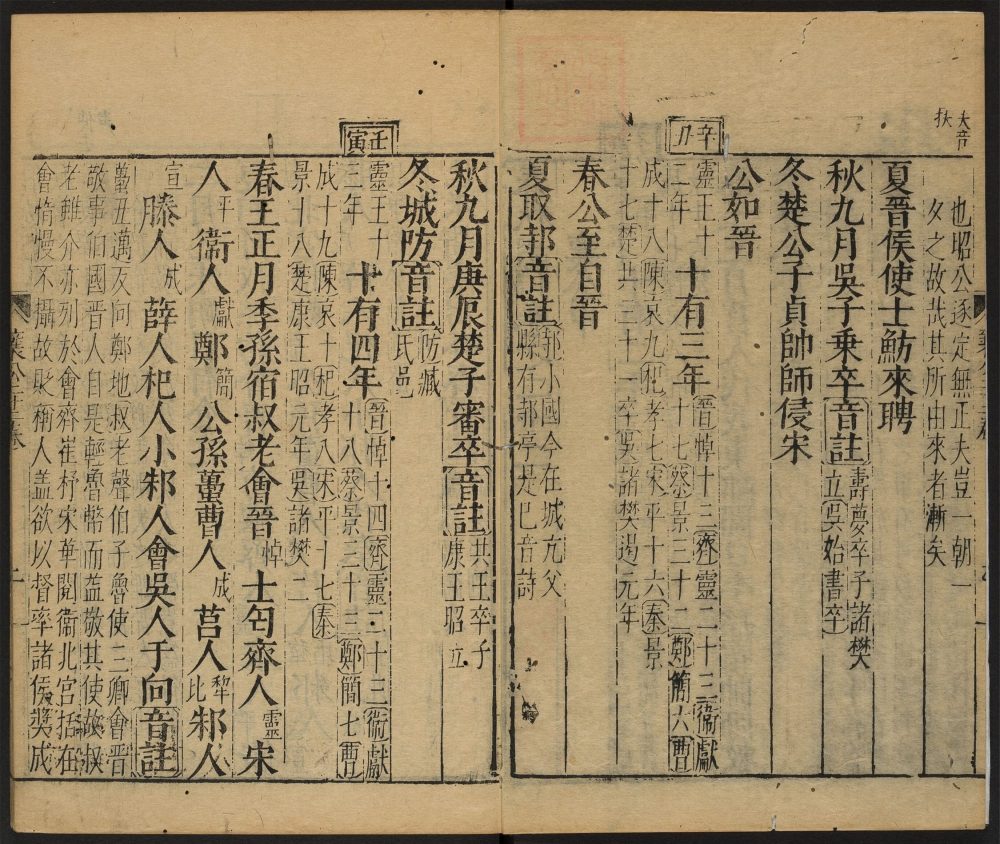 大音
扶
也昭公逐定無正夫豈一朝一
夕之故哉其所由來者漸矣
夏晉侯使士魴來聘
秋九月吳子乗卒音註壽夢卒子諸樊
立吳始書卒
冬楚公子貞帥師侵宋
公如晉
辛丑
靈王十
二年
十有三年
晉悼十二齊靈二十三衞獻
十七蔡景三十二鄭簡六曹
成十八陳哀九杞孝七宋平十六秦景
十七楚共三十一卒吳諸樊遏元年
春公至自晉
夏取邿音註邿小國今在城亢父
縣有邿亭是巳音詩
秋九月庚辰楚子審卒音註共王卒子
康王昭立
冬城防音註防臧
氏邑
壬寅
靈王十
三年
十有四年
晉悼十四齊靈二十三衞獻
十八蔡景三十三鄭簡七曹
成十九陳哀十杞孝八宋平十七秦
景十八楚康王昭元年吳諸樊二
春王正月季孫宿叔老會晉悼士匄齊人靈宋
人平衞人獻鄭簡公孫蠆曹人成莒人犂比邾人
宣滕人成薛人杞人小邾人會吳人于向音註
蠆丑邁反向鄭地叔老聲伯子魯使二卿會晉
敬事伯國晉人自是輕魯幣而益敬其使故叔
老雖介亦列於會齊崔杼宋華閱衞北宮括在
會惰慢不攝故貶稱人蓋欲以督率諸侯奬成